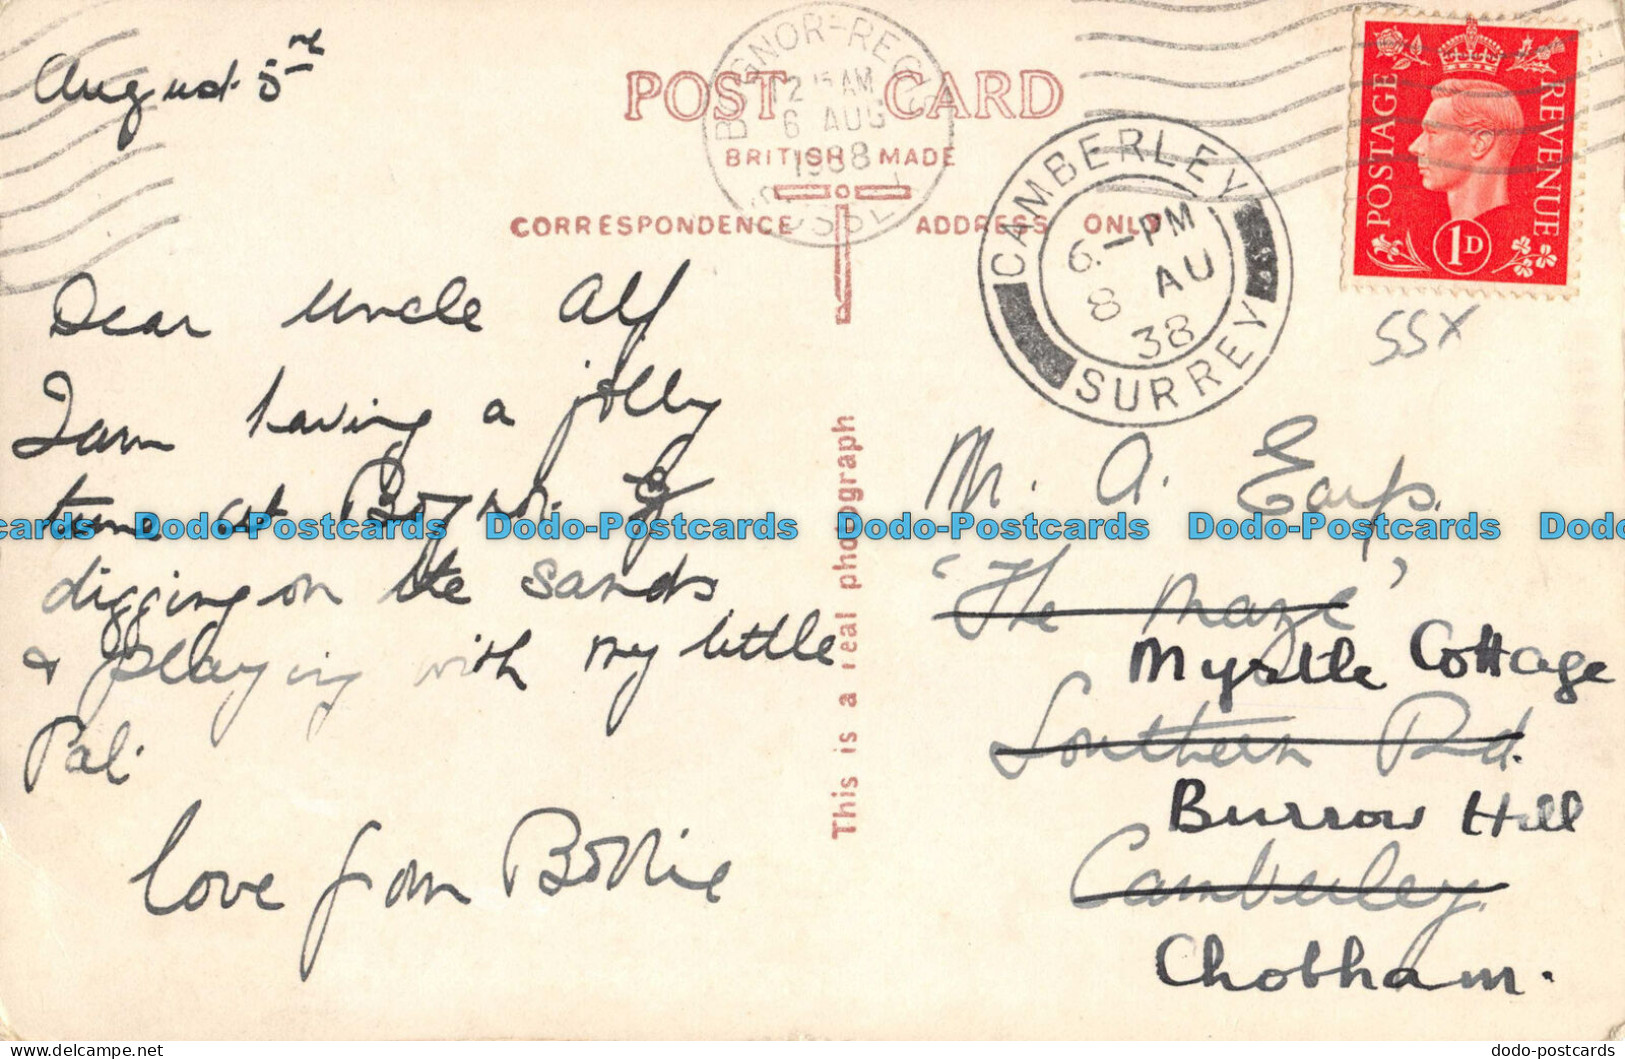 August 5
POST CARD
BRITISH MADE
CORRESPONDENCE
ADDRESS ONLY
BOGNOR-REGIS
12 15 AM
6 AUG
1938
SUSSEX
CAMBERLEY
6-PM
8 AU
38
SURREY
POSTAGE
REVENUE
1D
SSX
Dear Uncle Alf
I am having a jolly
time at Bognor.
digging on the sands
& playing with my little
Pal.
love from Bobbie
This is a real photograph
Mr. A. Earp.
'The Maze'
Myrtle Cottage
Southern Rd.
Burrow Hill
Camberley.
Chobham.
cards Dodo-Postcards Dodo-Postcards Dodo-Postcards Dodo-Postcards Dodo
dodo-postcards.com